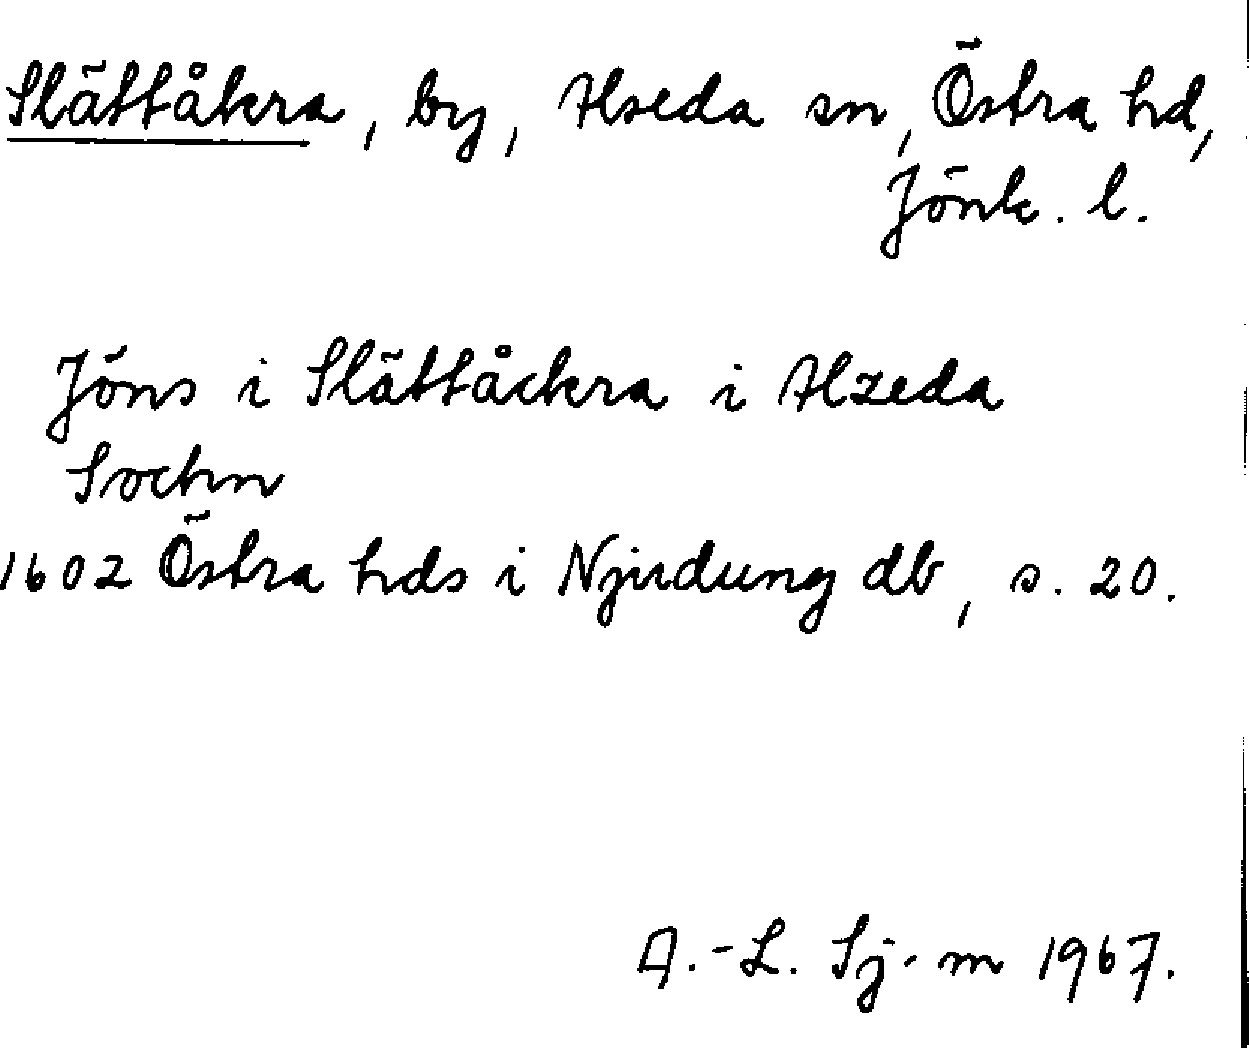 Slättåkra, by, Alseda sn, Östra hd,
Jönk. l.
Jöns i Slättåckra i Alzeda
Sockn
1602 Östra hds i Njudung db, s. 20.
A.-L. Sj-m 1967.